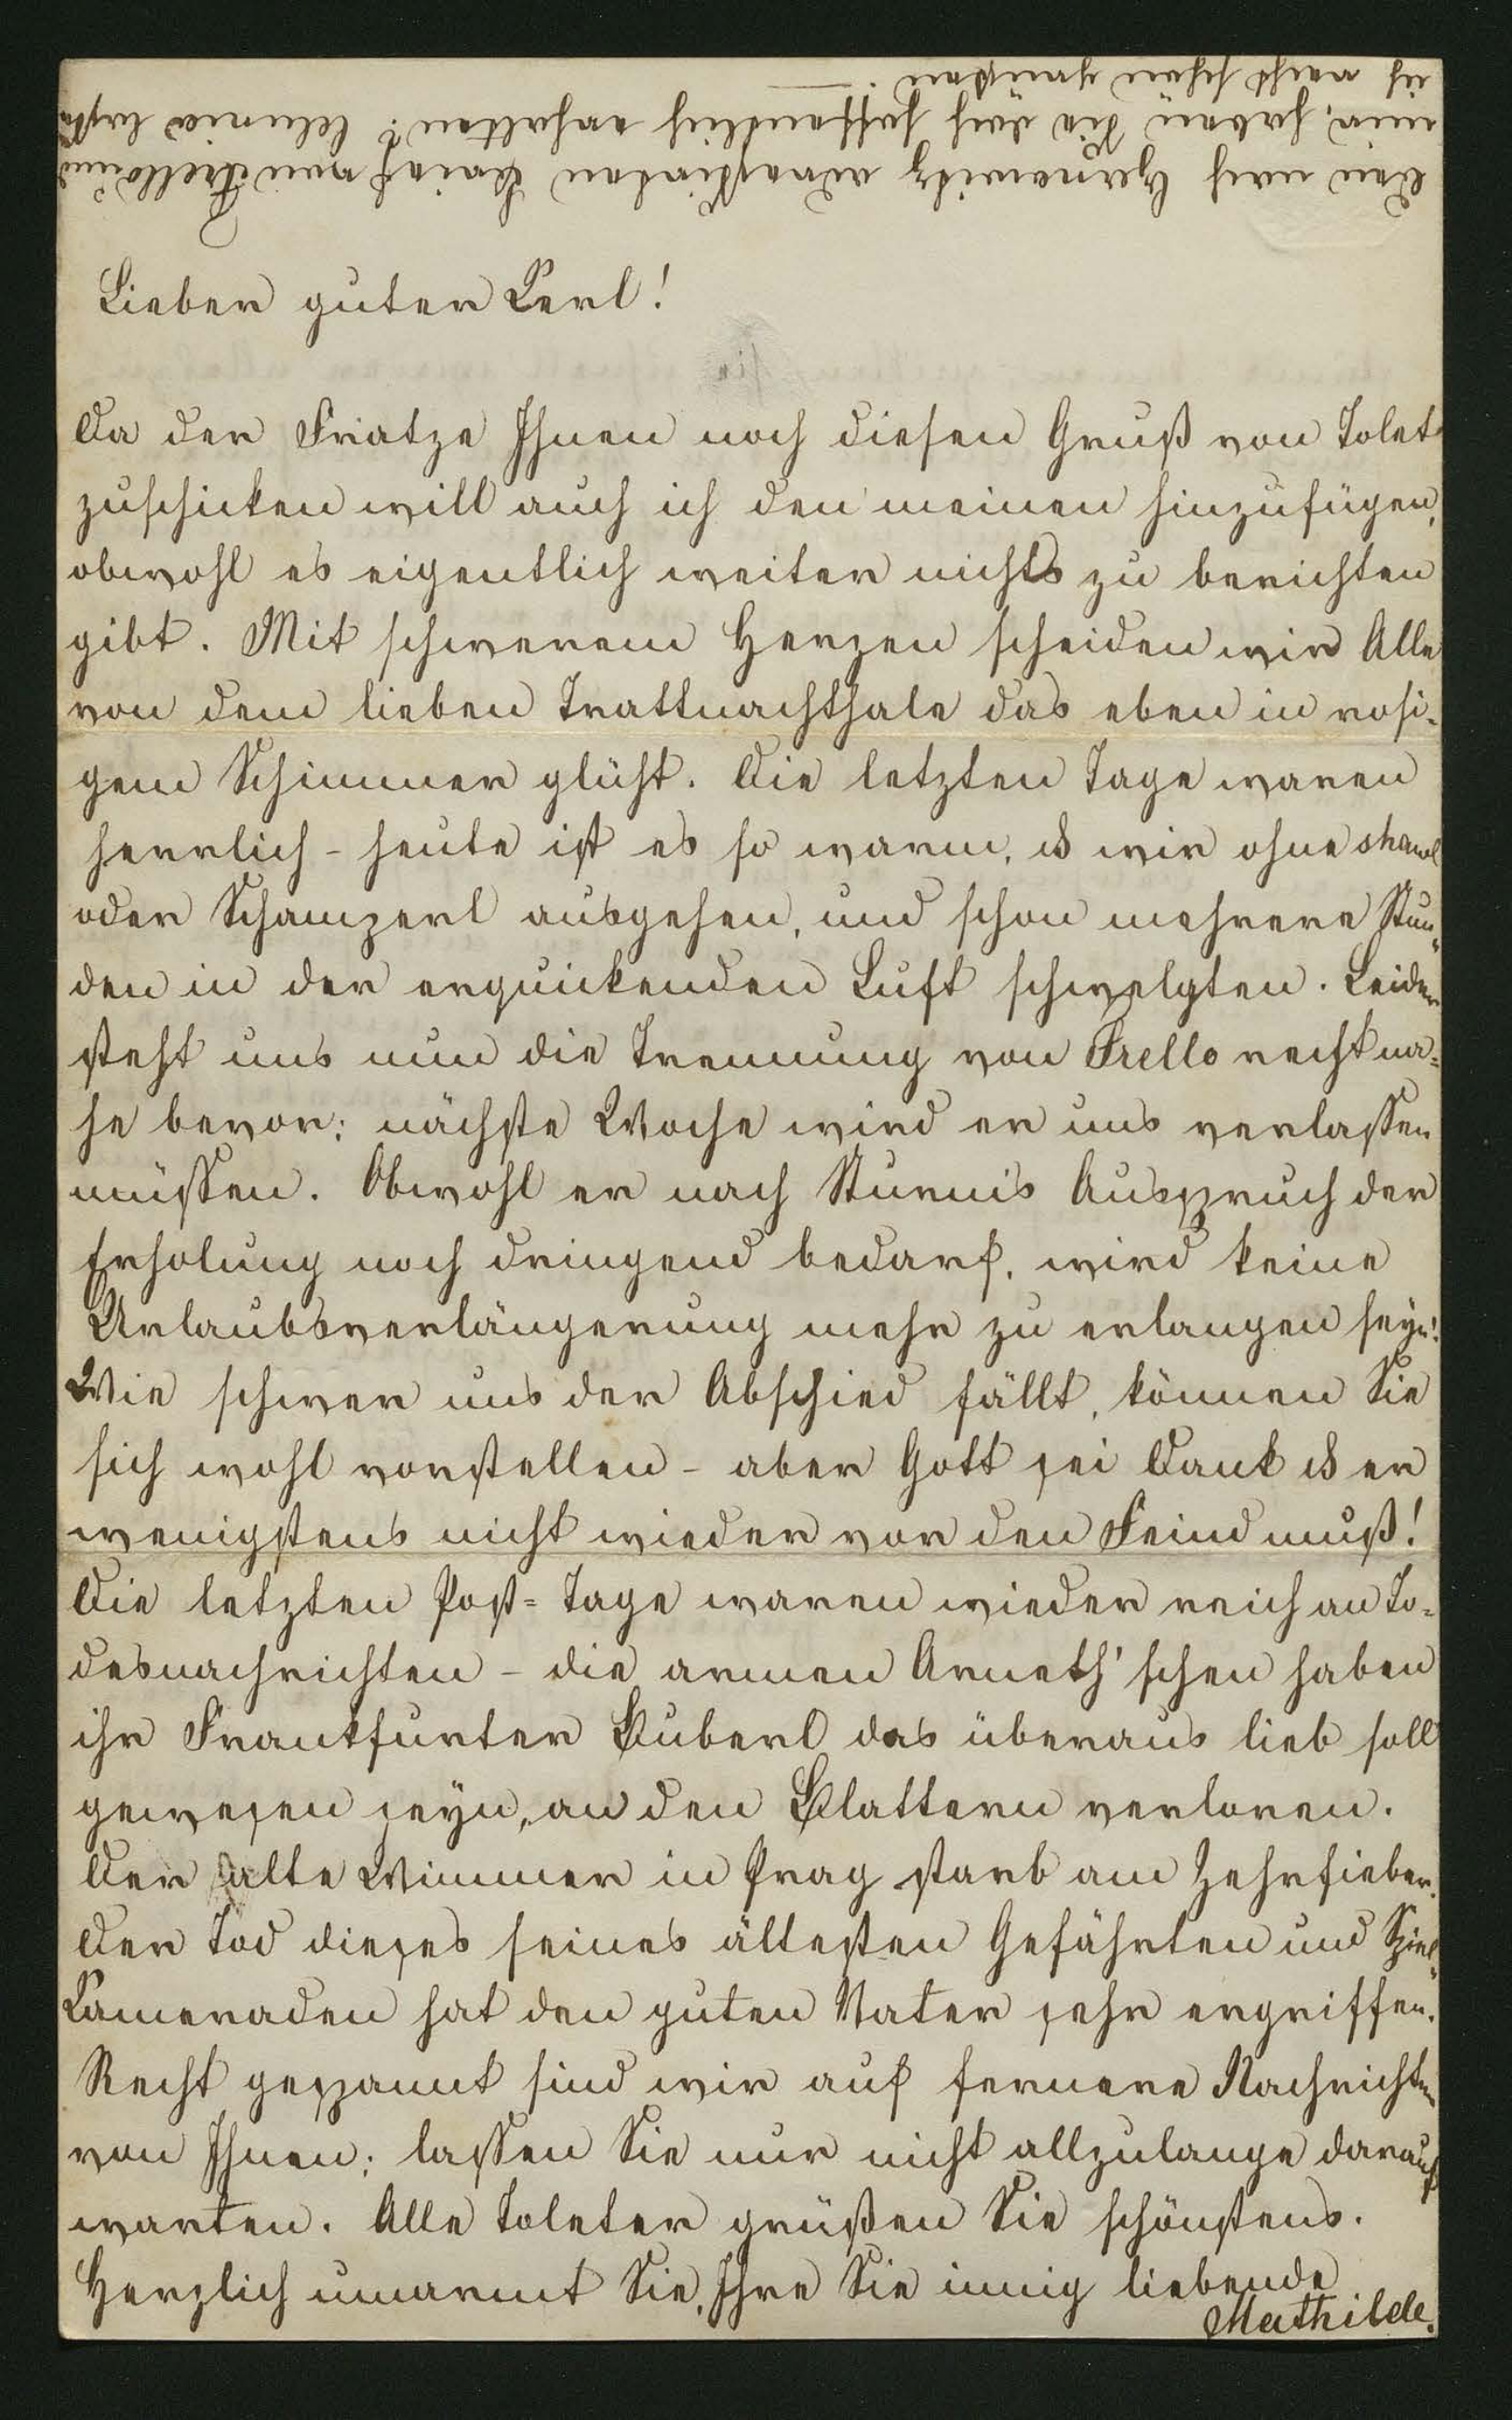 Den nach Czernowitz adressirten Brief von Trello und
mir, haben Sie doch hoffentlich erhalten? Clarrie laßt
ich recht schön grüssen.
Lieber guter Kerl!
Da der Friatze Ihnen noch diesen Gruß von Tolet
zuschicken will auch ich den meinen hinzufügen,
obwohl es eigentlich weiter nichts zu berichten
gibt. Mit schwerem Herzen scheiden wir Alle
von dem lieben Trattnachthale das eben in rosi-
gem Schimmer glüht. Die letzten Tage waren
herrlich - heute ist es so warm, ds wir ohne shawl
oder Schamzerl ausgehen, und schon mehrere Stun-
den in der erquickenden Luft schwelgten. Leider
steht uns nun die Trennung von Trello recht na-
he bevor; nächste Woche wird er uns verlassen
müssen. Obwohl er nach Sturm's Ausspruch der
Erholung noch dringend bedarf, wird keine
Urlaubsverlängerung mehr zu erlangen seyn!
Wie schwer uns der Abschied fällt, können Sie
sich wohl vorstellen - aber Gott sei Dank ds er
wenigstens nicht wieder vor den Feind muß!
Die letzten Post-Tage waren wieder reich an To-
desnachrichten - die armen Arneth'schen haben
ihr Frankfurter Buberl das überaus lieb soll
gewesen seyn, an den Blattern verloren.
Der alte Wimmer in Prag starb am Zehrfieber.
Der Tod dieses seines ältesten Gefährten und Spiel-
Kameraden hat den guten Vater sehr ergriffen.
Recht gespannt sind wir auf fernere Nachrichten
von Ihnen; lassen Sie nur nicht allzulange darauf
warten. Alle Toleter grüßen Sie schönstens.
Herzlich umarmt Sie, Ihre Sie innig liebende
Mathilde.